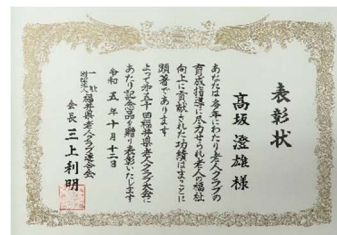 表彰状
高坂 澄雄 様
あなたは多年にわたり老人クラブの
育成指導に尽力せられ老人の福祉
向上に貢献された功績はまことに
顕著であります
よって第五十回福井県老人クラブ大会に
あたり記念品を贈り表彰いたします
令和五年十月十二日
一般社団法人福井県老人クラブ連合会
会長 三上利明